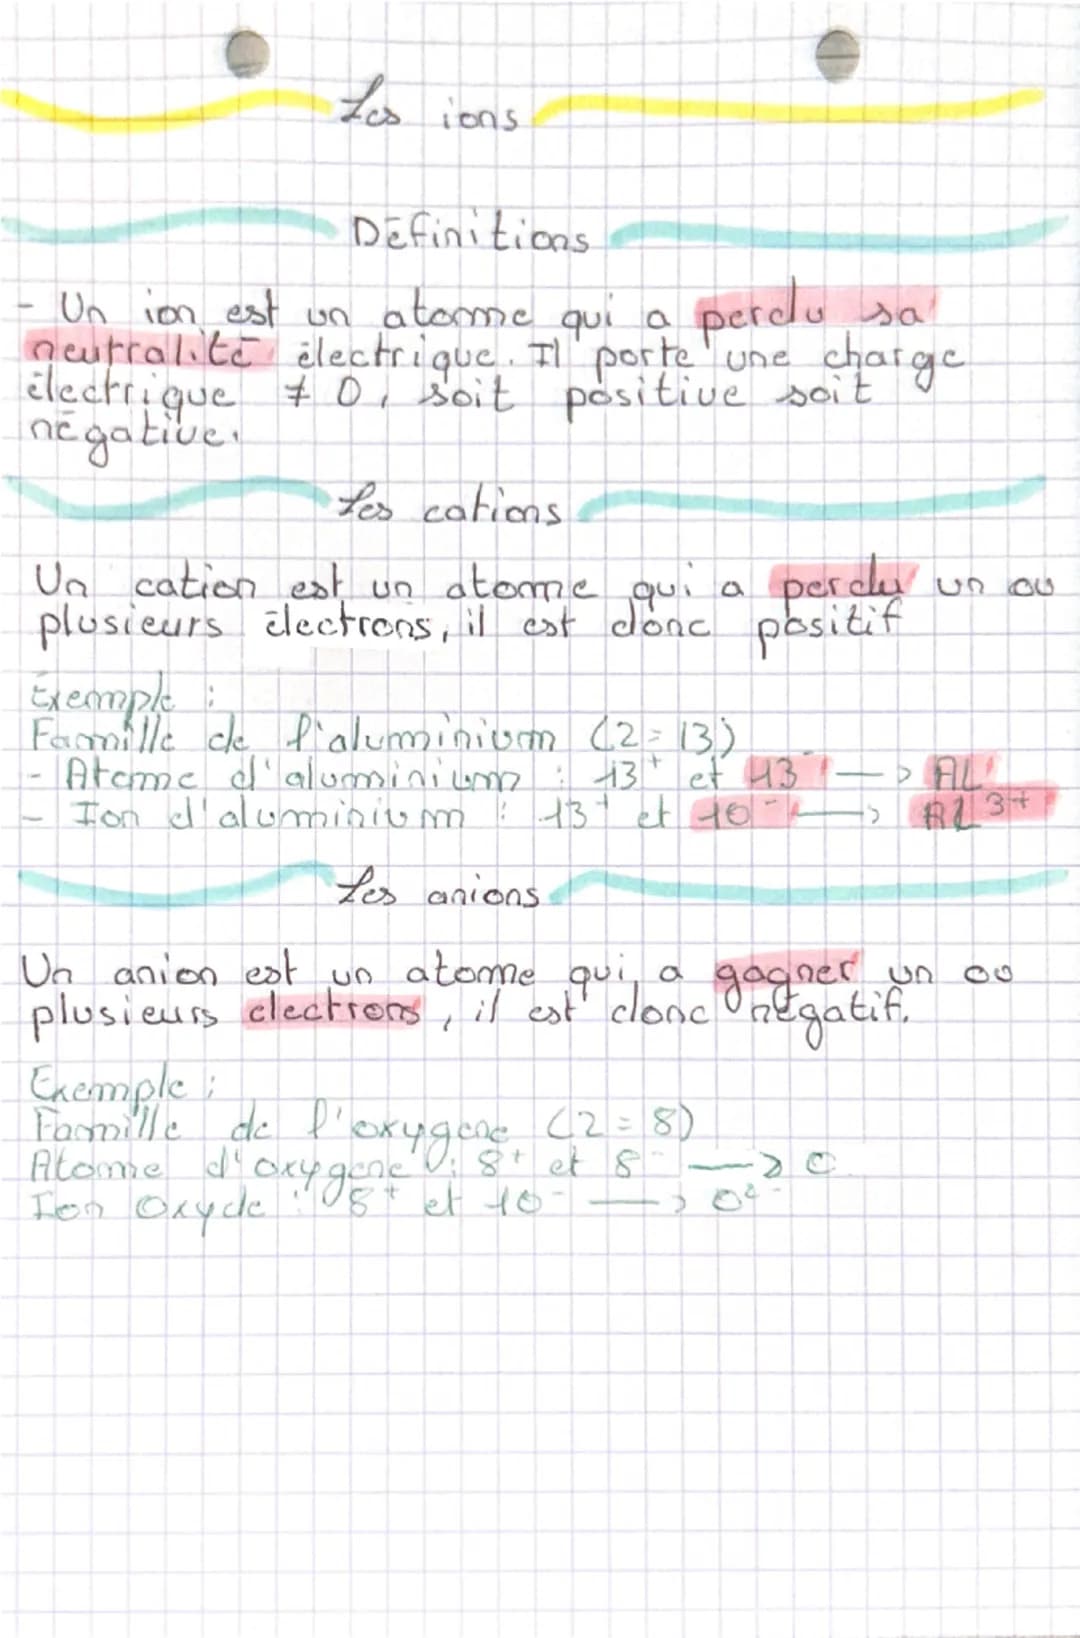 Les ions
Définitions
- Un ion est un atome qui a perdu sa
neutralité électrique. Il porte une charge
électrique ≠ 0, soit positive soit
négative.
Les cations
Un cation est un atome qui a perdu un ou
plusieurs électrons, il est donc positif
Exemple :
Famille de l'aluminium (Z = 13)
- Atome d'aluminium : 13+ et 13- —> AL
- Ion d'aluminium : 13+ et 10- —> AL3+
Les anions
Un anion est un atome qui a gagner un ou
plusieurs electrons, il est donc négatif.
Exemple :
Famille de l'oxygene (Z = 8)
Atome d'oxygene : 8+ et 8- —> O
Ion Oxyde : 8+ et 10- —> O2-